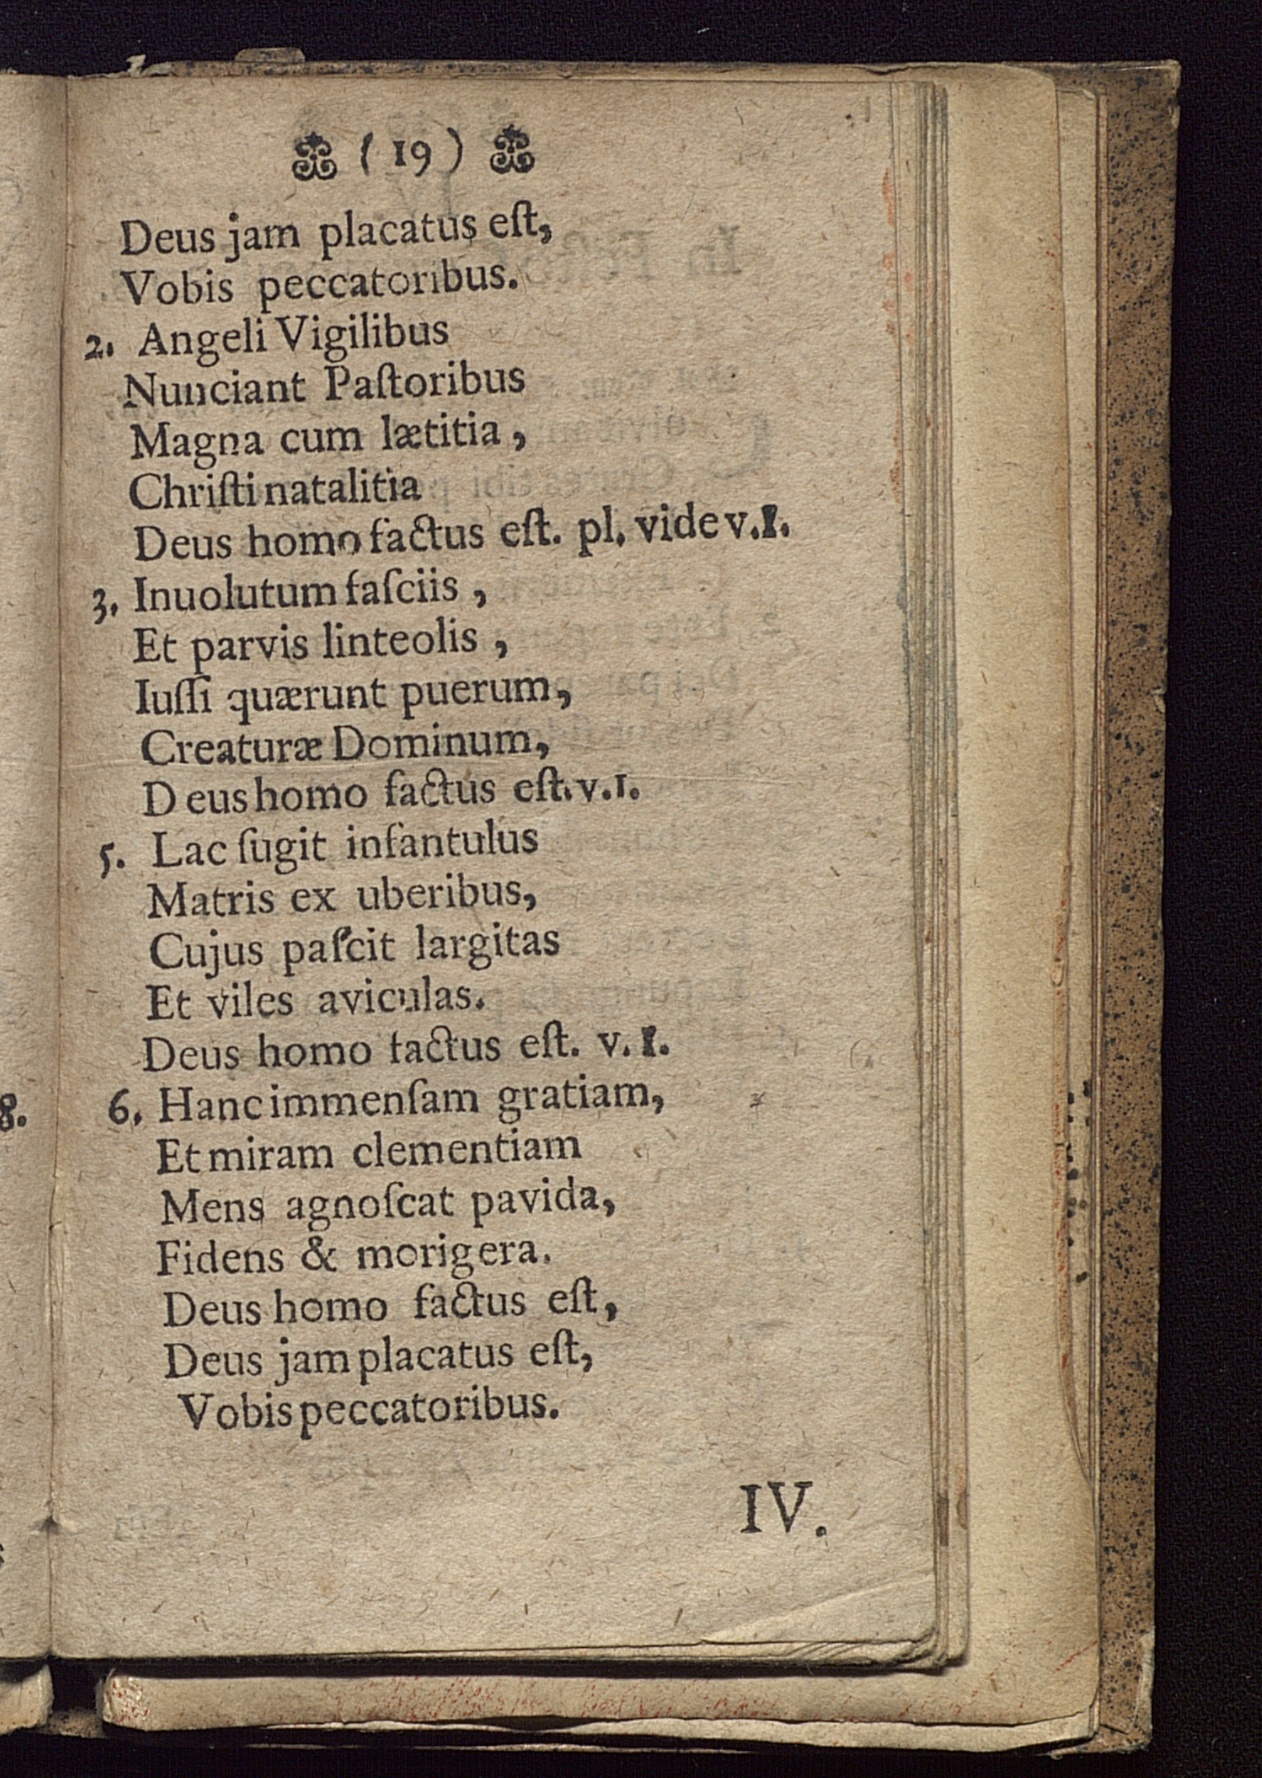 ( 19 )
Deus jam placatus eſt,
Vobis peccatoribus.
2. Angeli Vigilibus
Nunciant Paſtoribus
Magna cum lætitia,
Chriſti natalitia
Deus homo factus eſt. pl. vide v. I.
3. Inuolutum faſciis,
Et parvis linteolis,
Iuſſi quærunt puerum,
Creaturæ Dominum,
Deus homo factus eſt. v. I.
5. Lac ſugit infantulus
Matris ex uberibus,
Cujus paſcit largitas
Et viles aviculas.
Deus homo factus eſt. v. I.
8.
6. Hanc immenſam gratiam,
Et miram clementiam
Mens agnoſcat pavida,
Fidens & morigera.
Deus homo factus eſt,
Deus jam placatus eſt,
Vobis peccatoribus.
IV.